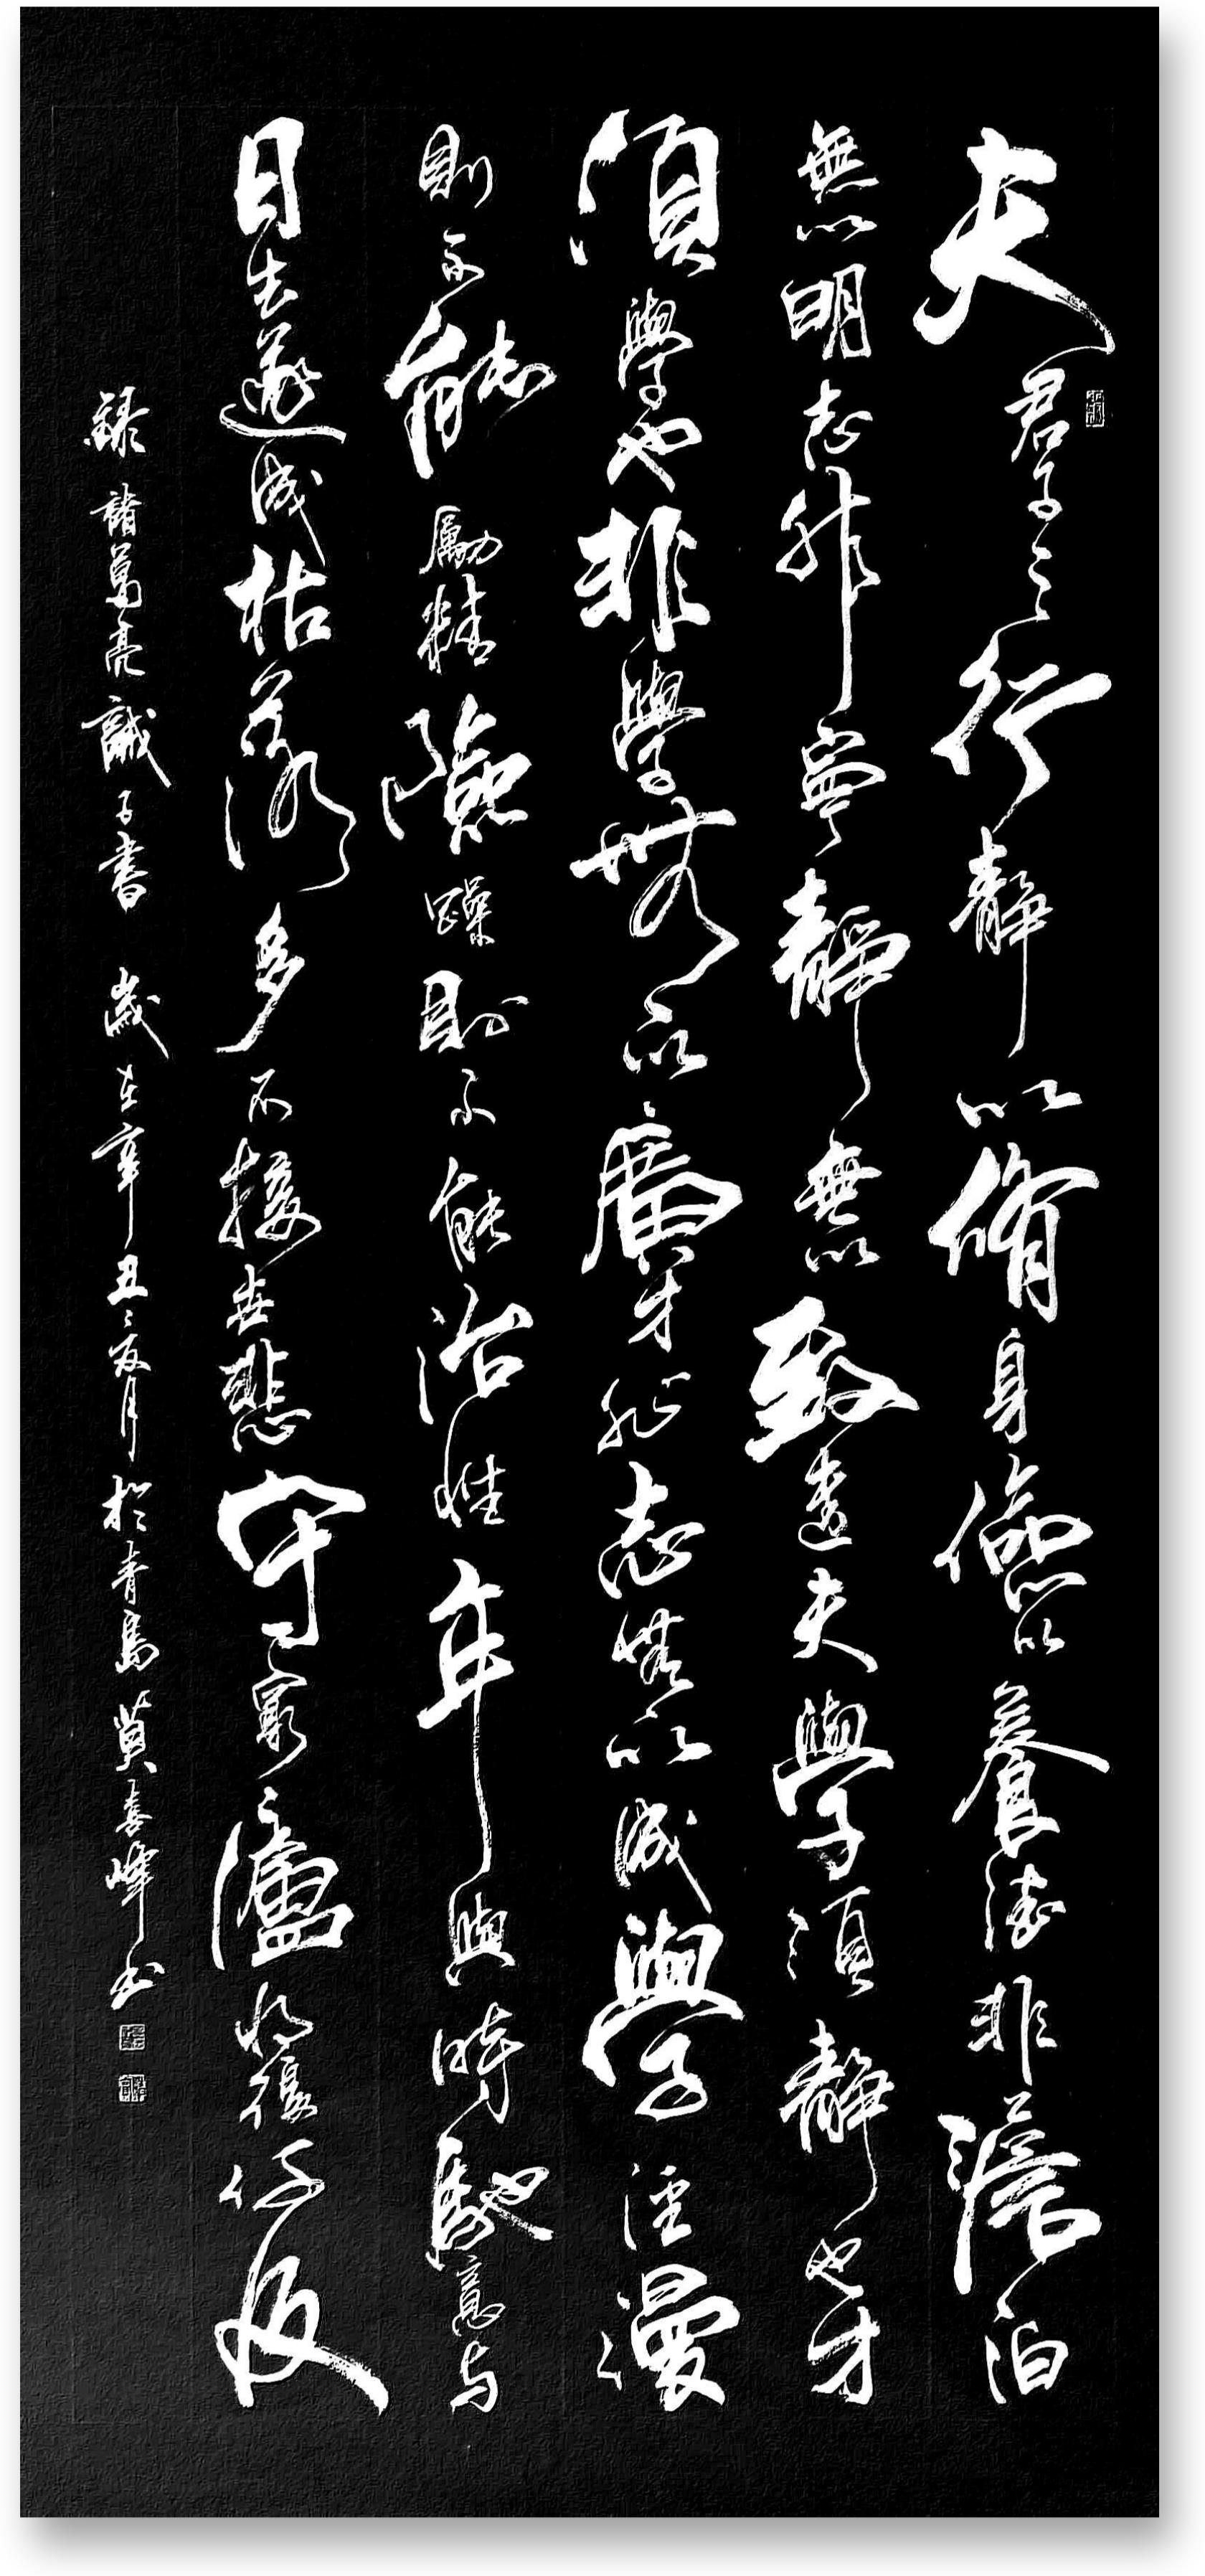 夫君子之行靜以脩身儉以養德非澹泊
無以明志非寧靜無以致遠夫學須靜也才
須學也非學無以廣才非志無以成學淫漫
則不能勵精險躁則不能治性年與時馳意与
日去遂成枯落多不接世悲守窮廬將復何及
錄諸葛亮誡子書 歲在辛丑之夏月於青島喜峰書